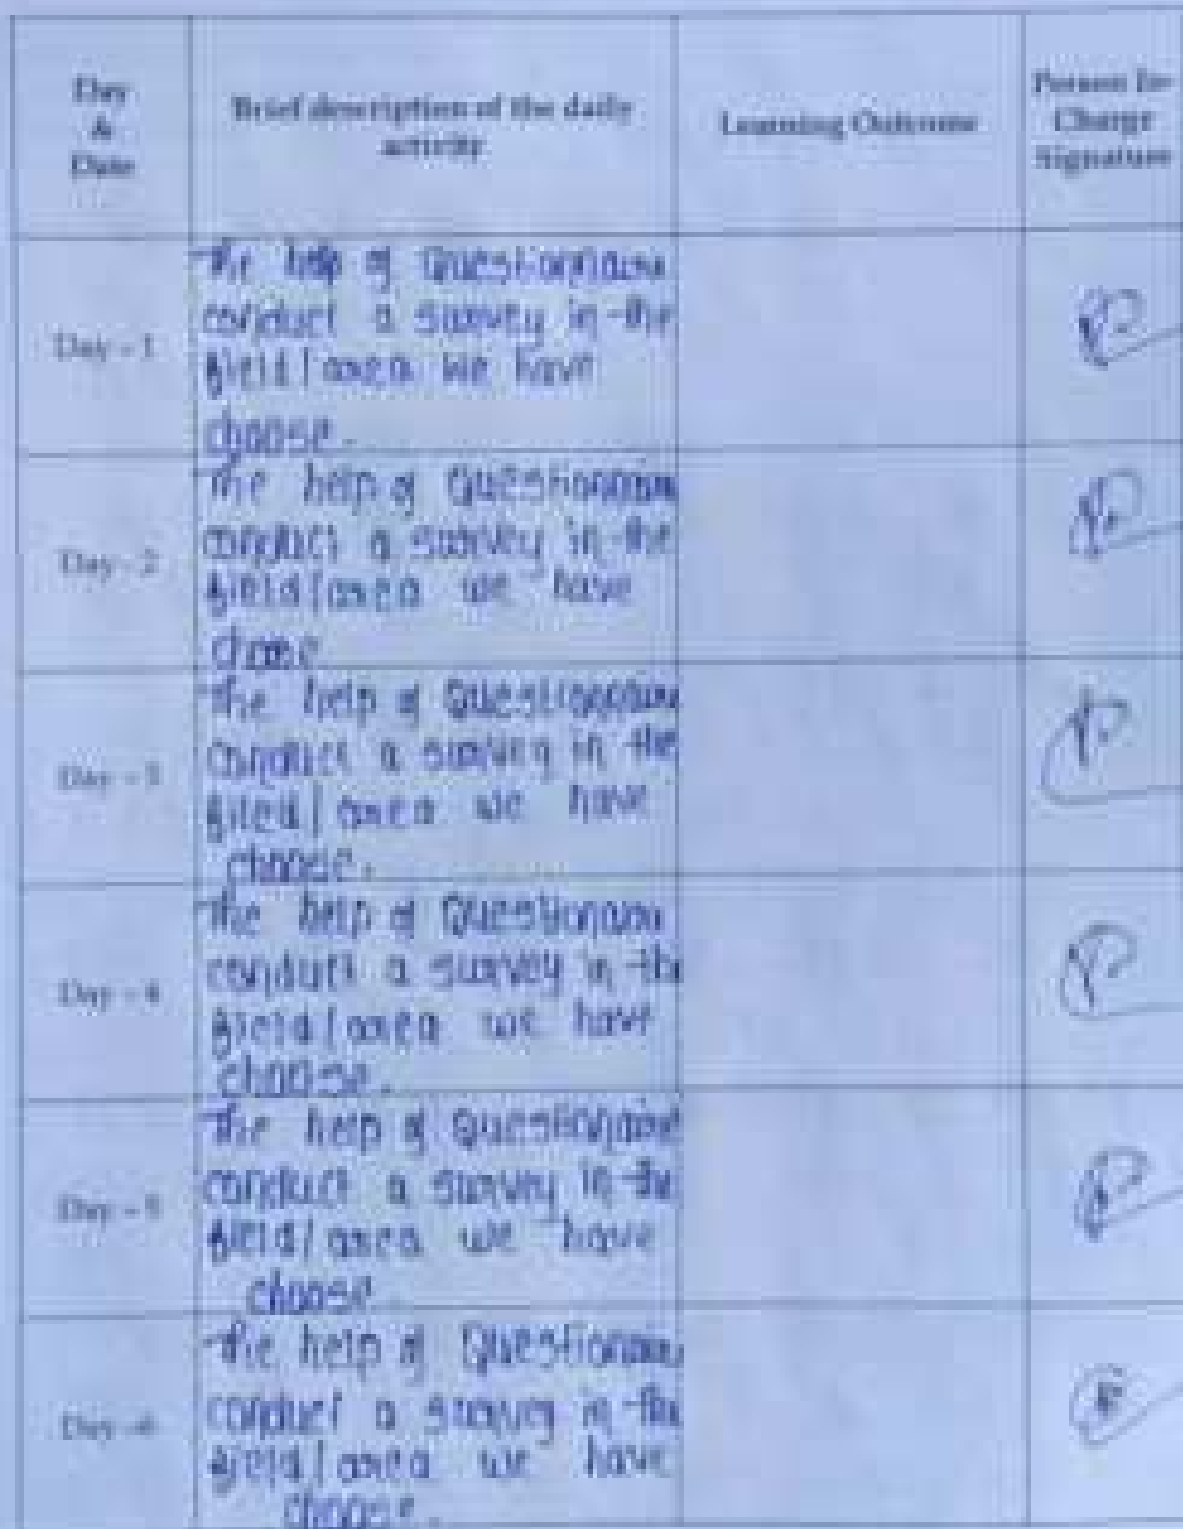 Day
&
Date
Brief description of the daily
activity
Learning Outcome
Person In-
Charge
Signature
Day - 1
The help of Questionnaire
conduct a survey in the
field/area we have
choose.
Day - 2
The help of Questionnaire
conduct a survey in the
field/area we have
choose
Day - 3
The help of Questionnaire
conduct a survey in the
filed/area we have
choose.
Day - 4
The help of Questionnaire
conduct a survey in the
field/area we have
choose.
Day - 5
The help of Questionnaire
conduct a survey in the
field/area we have
choose
Day - 6
The help of Questionnaire
conduct a survey in the
field/area we have
choose.